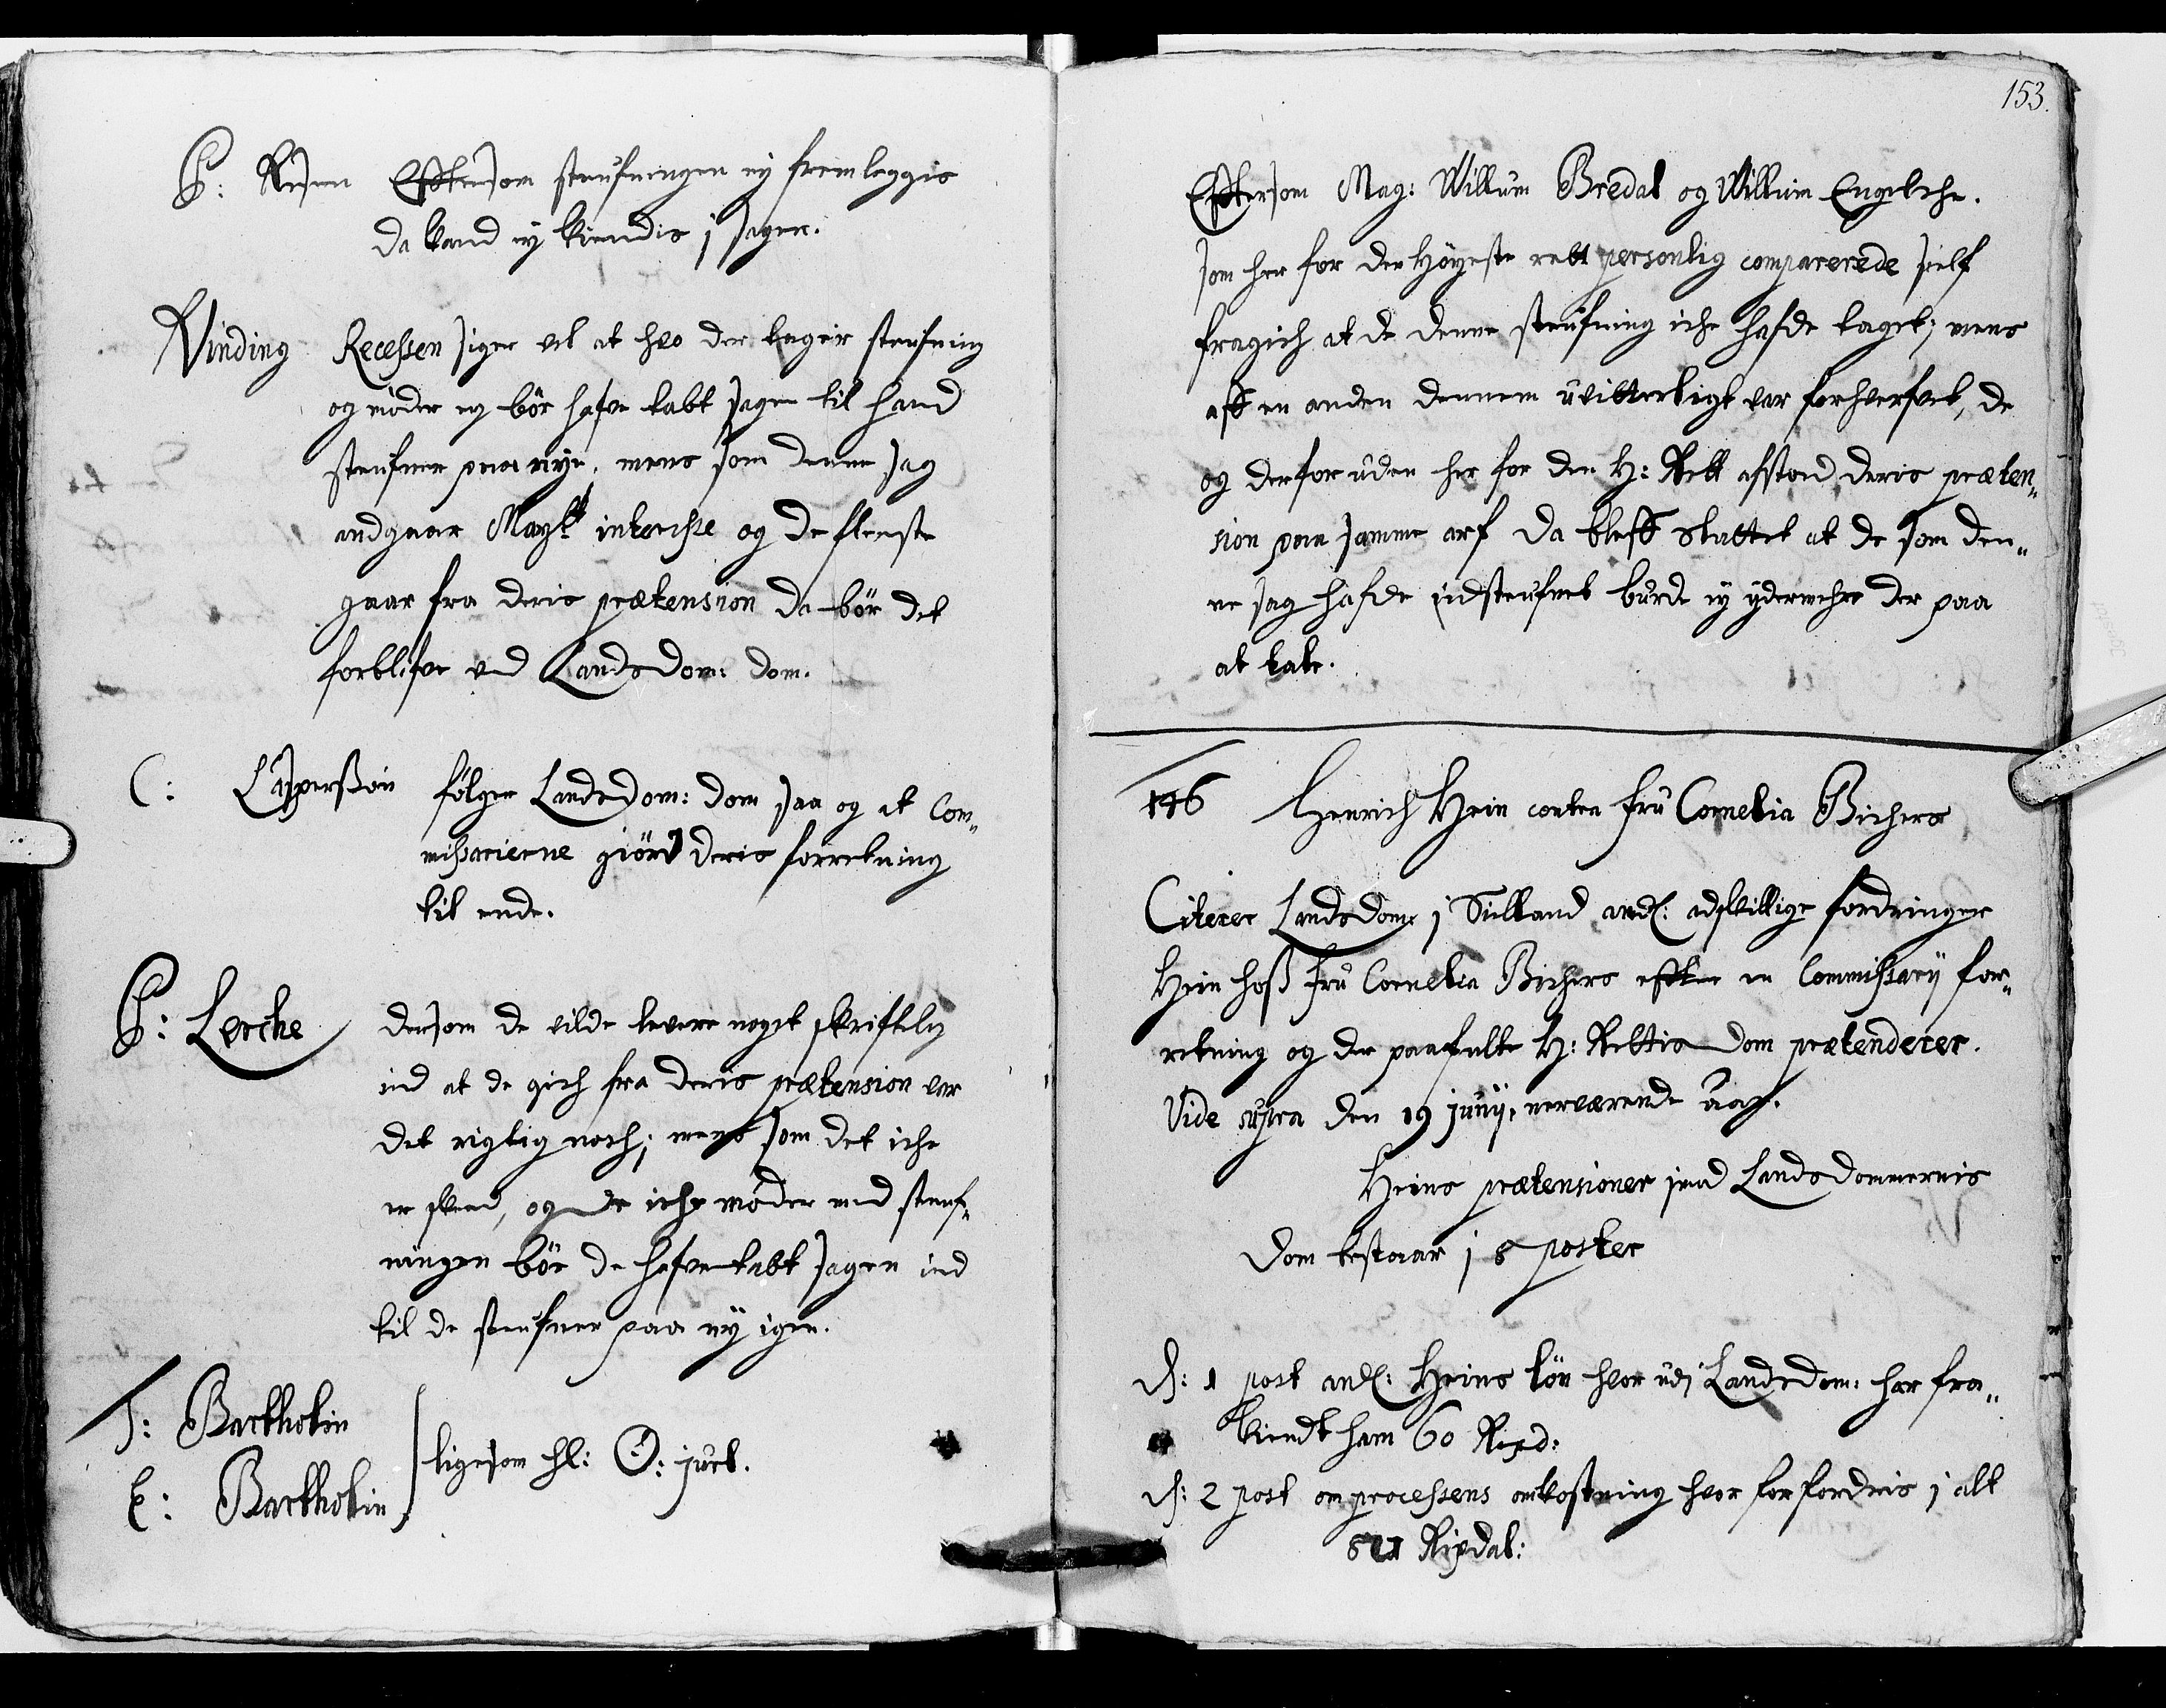 P: Resen Efftersom steufningen ey fremleggis
da kand ey kiendis j sagen.
Vinding Recessen siger vel at hvo der tager steufning
og möder ey bör hafve tabt sagen til hand
steufner paa nye, mens som denne sag
andgaar Maytt interesse og de fleeste
gaar fra deris prætension da bör det
forblifve ved Landsdom: dom.
C: Casperßøn fölger Landsdom: dom saa og at Com„
missarierne giörd deris forretning
til ende.
P: Lerche dersom de vilde levere noget skriftelig
ind at de gich fra deris prætension var
det rigtig noch; mens som det iche
er skeed, og de iche möder med steuf„
ningen bör de hafve tabt sagen ind
til de steufner paa ny igen.
T: Bartholin
E: Bartholin
ligesom hl: O: juel.
153.
Efftersom Mag: Willum Bredal og Willum Engelche.
som her for den Höyeste rett personlig comparerede sielf
fragich at de denne steufning iche hafde taget; mens
aff en anden dennem uvitterligt var forhverfvet, de
og derforuden her for den H: Rett afstod deris præten„
sion paa samme arf da bleff sluttet at de som den„
ne sag hafde indsteufnet burde ey ydermehre der paa
at tale.
146 Henrich Hein contra fru Cornelia Bichers
Citerer Landsdom: j Siælland andl: adskillige fordringer
Hein hoß fru Cornelia Bichers effter en Commissary for„
retning og der paafulte H: Rettis dom prætenderer.
Vide supra den 19 juny, nerværende aar.
Heins prætensioner jmod Landsdommernis
Dom bestaar j 8 poster
D: 1 post andl: Heins lön hvor udj Landsdom: har fra„
kiendt ham 60 Rixd:
D: 2 post om processens omkostning hvor for fordris j alt
821 Rixdal: